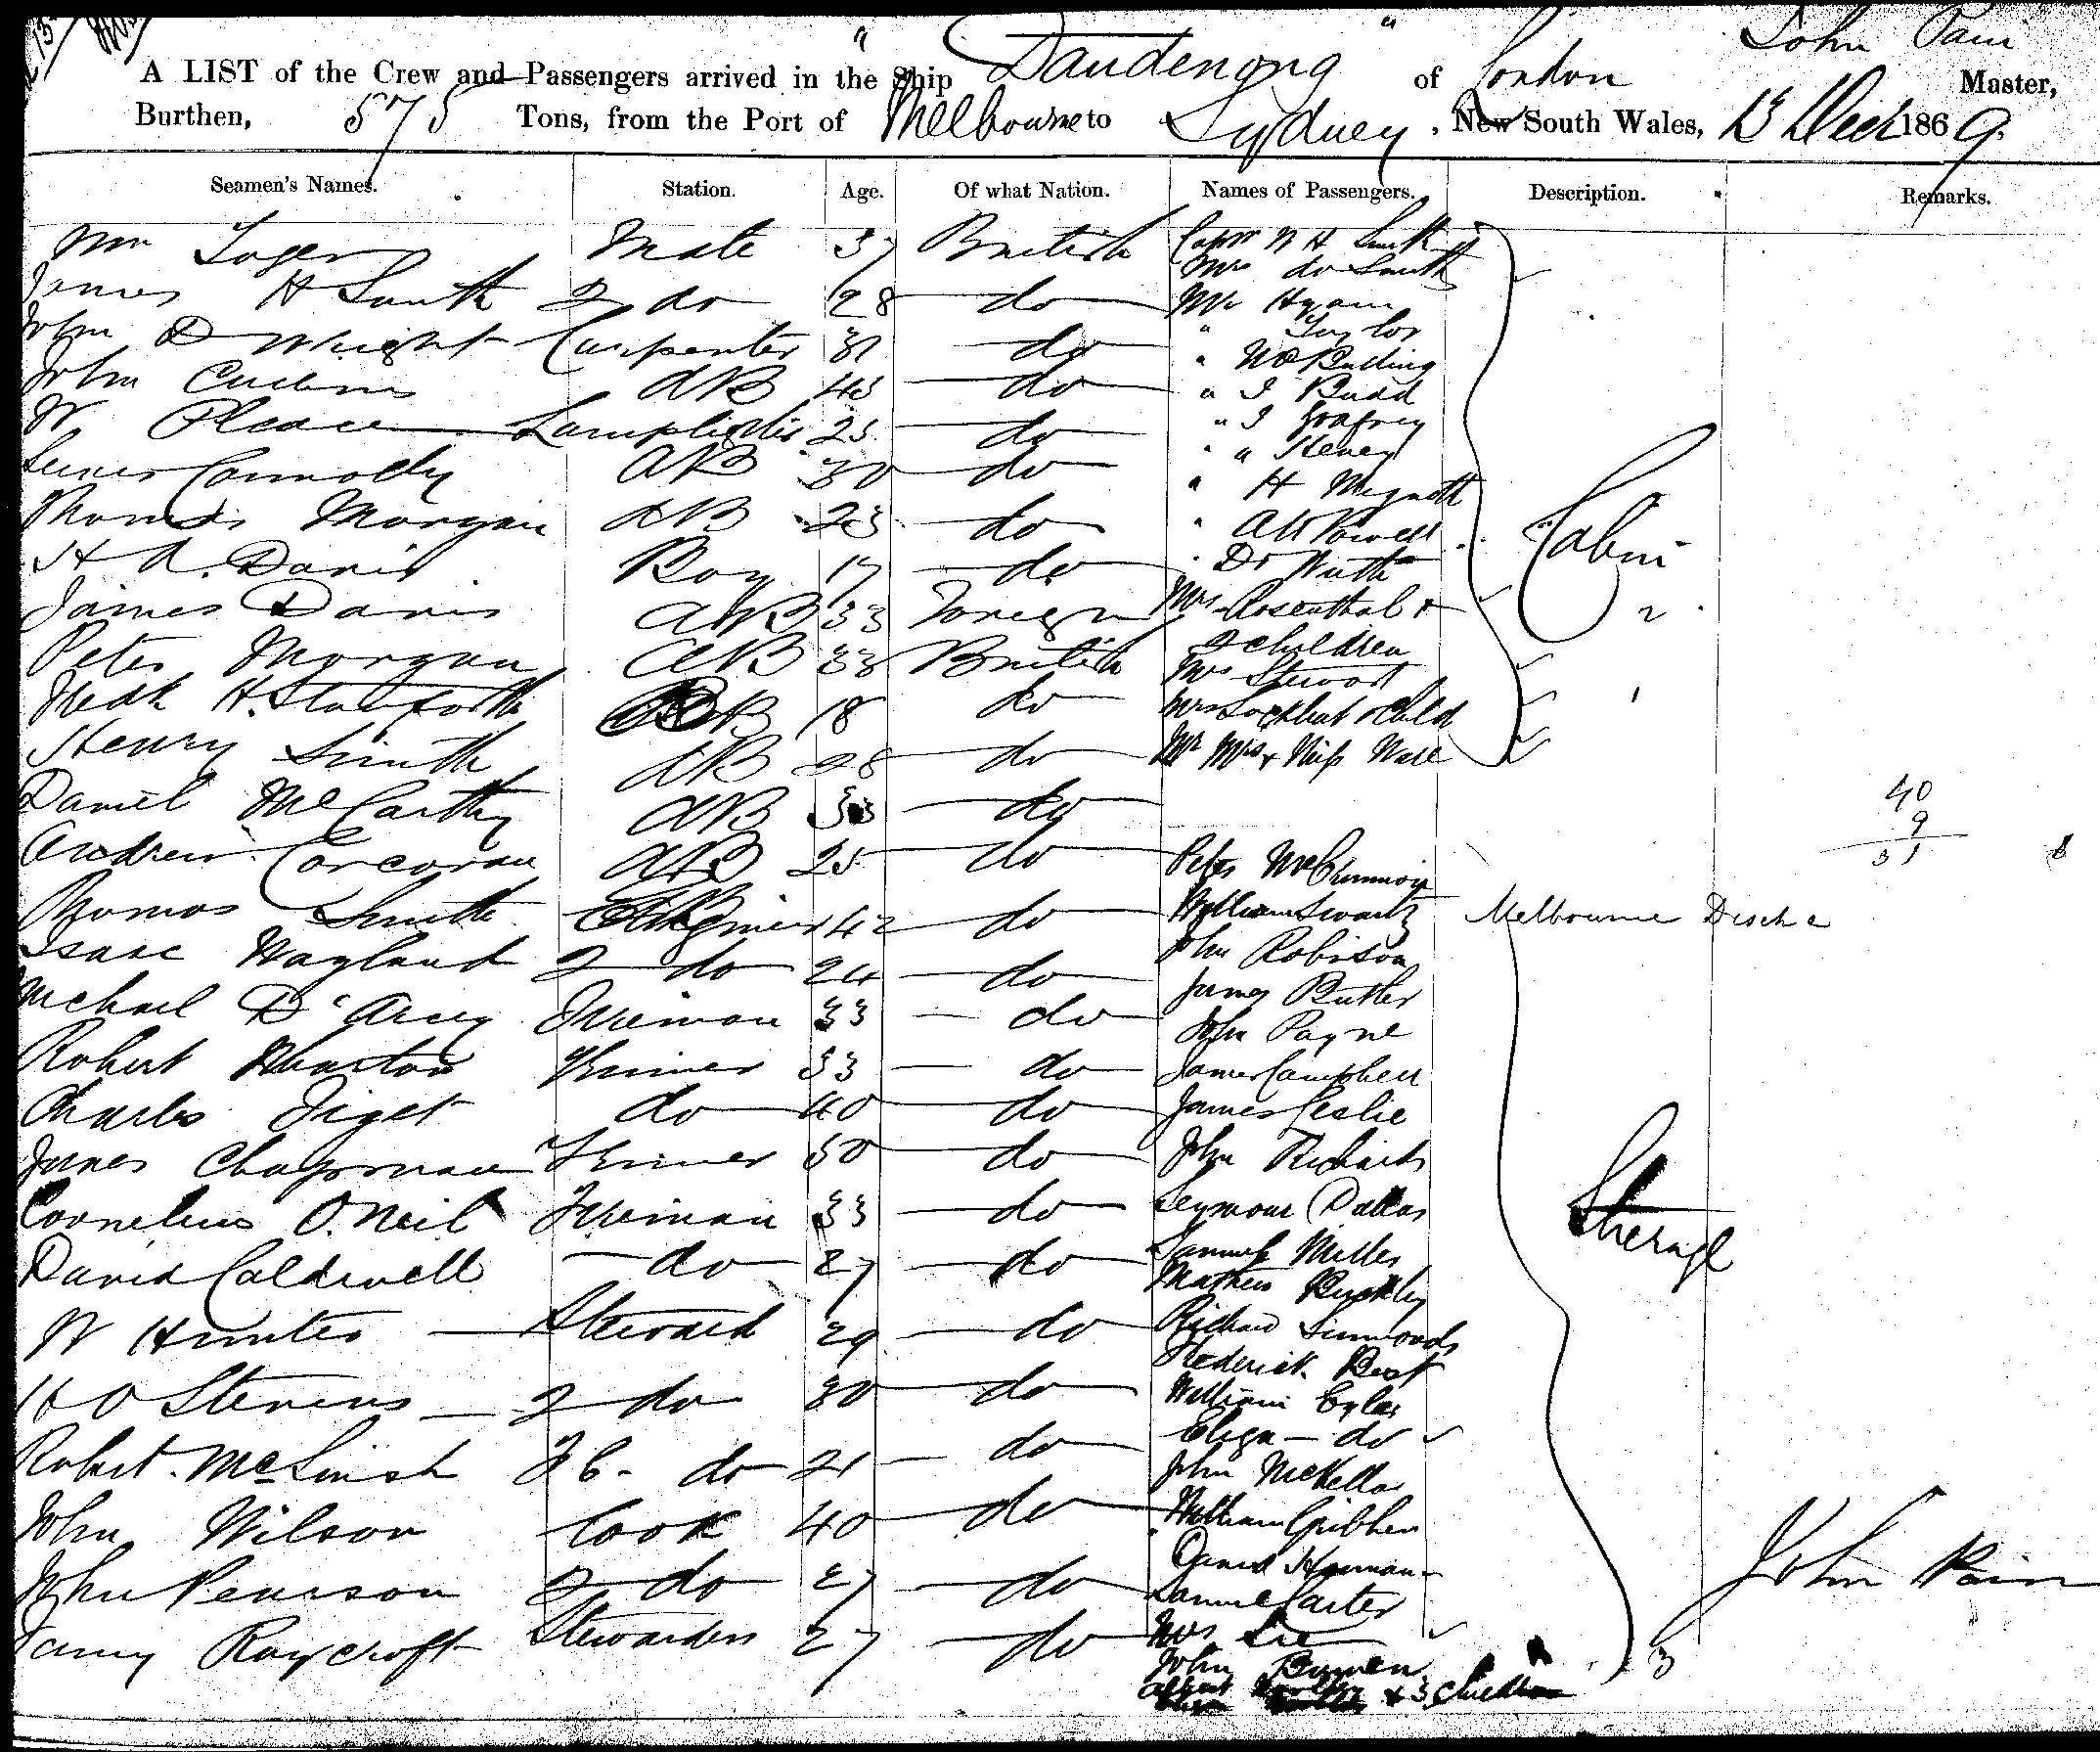 A LIST of the Crew and Passengers arrived in the Ship "Dandenong" of London John Pain Master,
Burthen, 575 Tons, from the Port of Melbourne to Sydney, New South Wales, 13 Decr 1869,
Seamen's Names. Station. Age. Of what Nation. Names of Passengers. Description. Remarks.
Wm Mate 37 British
James H Smith 2 do 28 do
John D Wright Carpenter 31 do
John AB 43 do
W Pleace Lamplighter 25 do
James Connolly AB 30 do
Thomas Morgan AB 23 do
H A. Davis Boy 17 do
James Davis AB 33 Foreign
Peter Morgan AB 33 British
Fredk H. Staniforth AB 18 do
Henry Smith AB 28 do
Daniel McCarthy AB 33 do
Andrew Corcoran AB 25 do
Thomas Smith Engineer 42 do
Isaac Wayland 2 do 24 do
Michael D'Arcy Fireman 33 do
Robert Wharton Trimer 33 do
Charles do 40 do
James Chapman Trimer 30 do
Cornelius O.Neil Fireman 33 do
David Caldwell do 27 do
W Hunter Steward 29 do
H O Stevens 2 do 30 do
Robert McLinsh F C. do 21 do
John Wilson Cook 40 do
John Pearson 2 do 27 do
Fanny Raycroft Stewardess 27 do
Captn W H Smith
Mrs do Smith
Mr Hyam
" Taylor
" W Butling
" J Budd
" J Godfrey
" " Heney
" H
" A W Powell
" Dr
Mrs Rosenthal &
2 children
Mrs Stewart
Mrs Lockhart & Child
Mr Mrs & Miss Wall
Cabin
2
1
40
9
31
Peter McCrimmon
William Swartz Melbourne Disch
John Robison
James Butler
John Payne
James Campbell
James Leslie
John Richards
Seymour Dallas
Samuel Miller
Mathew Buckley
Richard Simmonds
Frederick Best
William
Eliza do
John McKellar
William Gribben
David Hannan
Samuel Carter
Mrs Lee
John
Albert & 3 Children
Steerage
3
John Pain